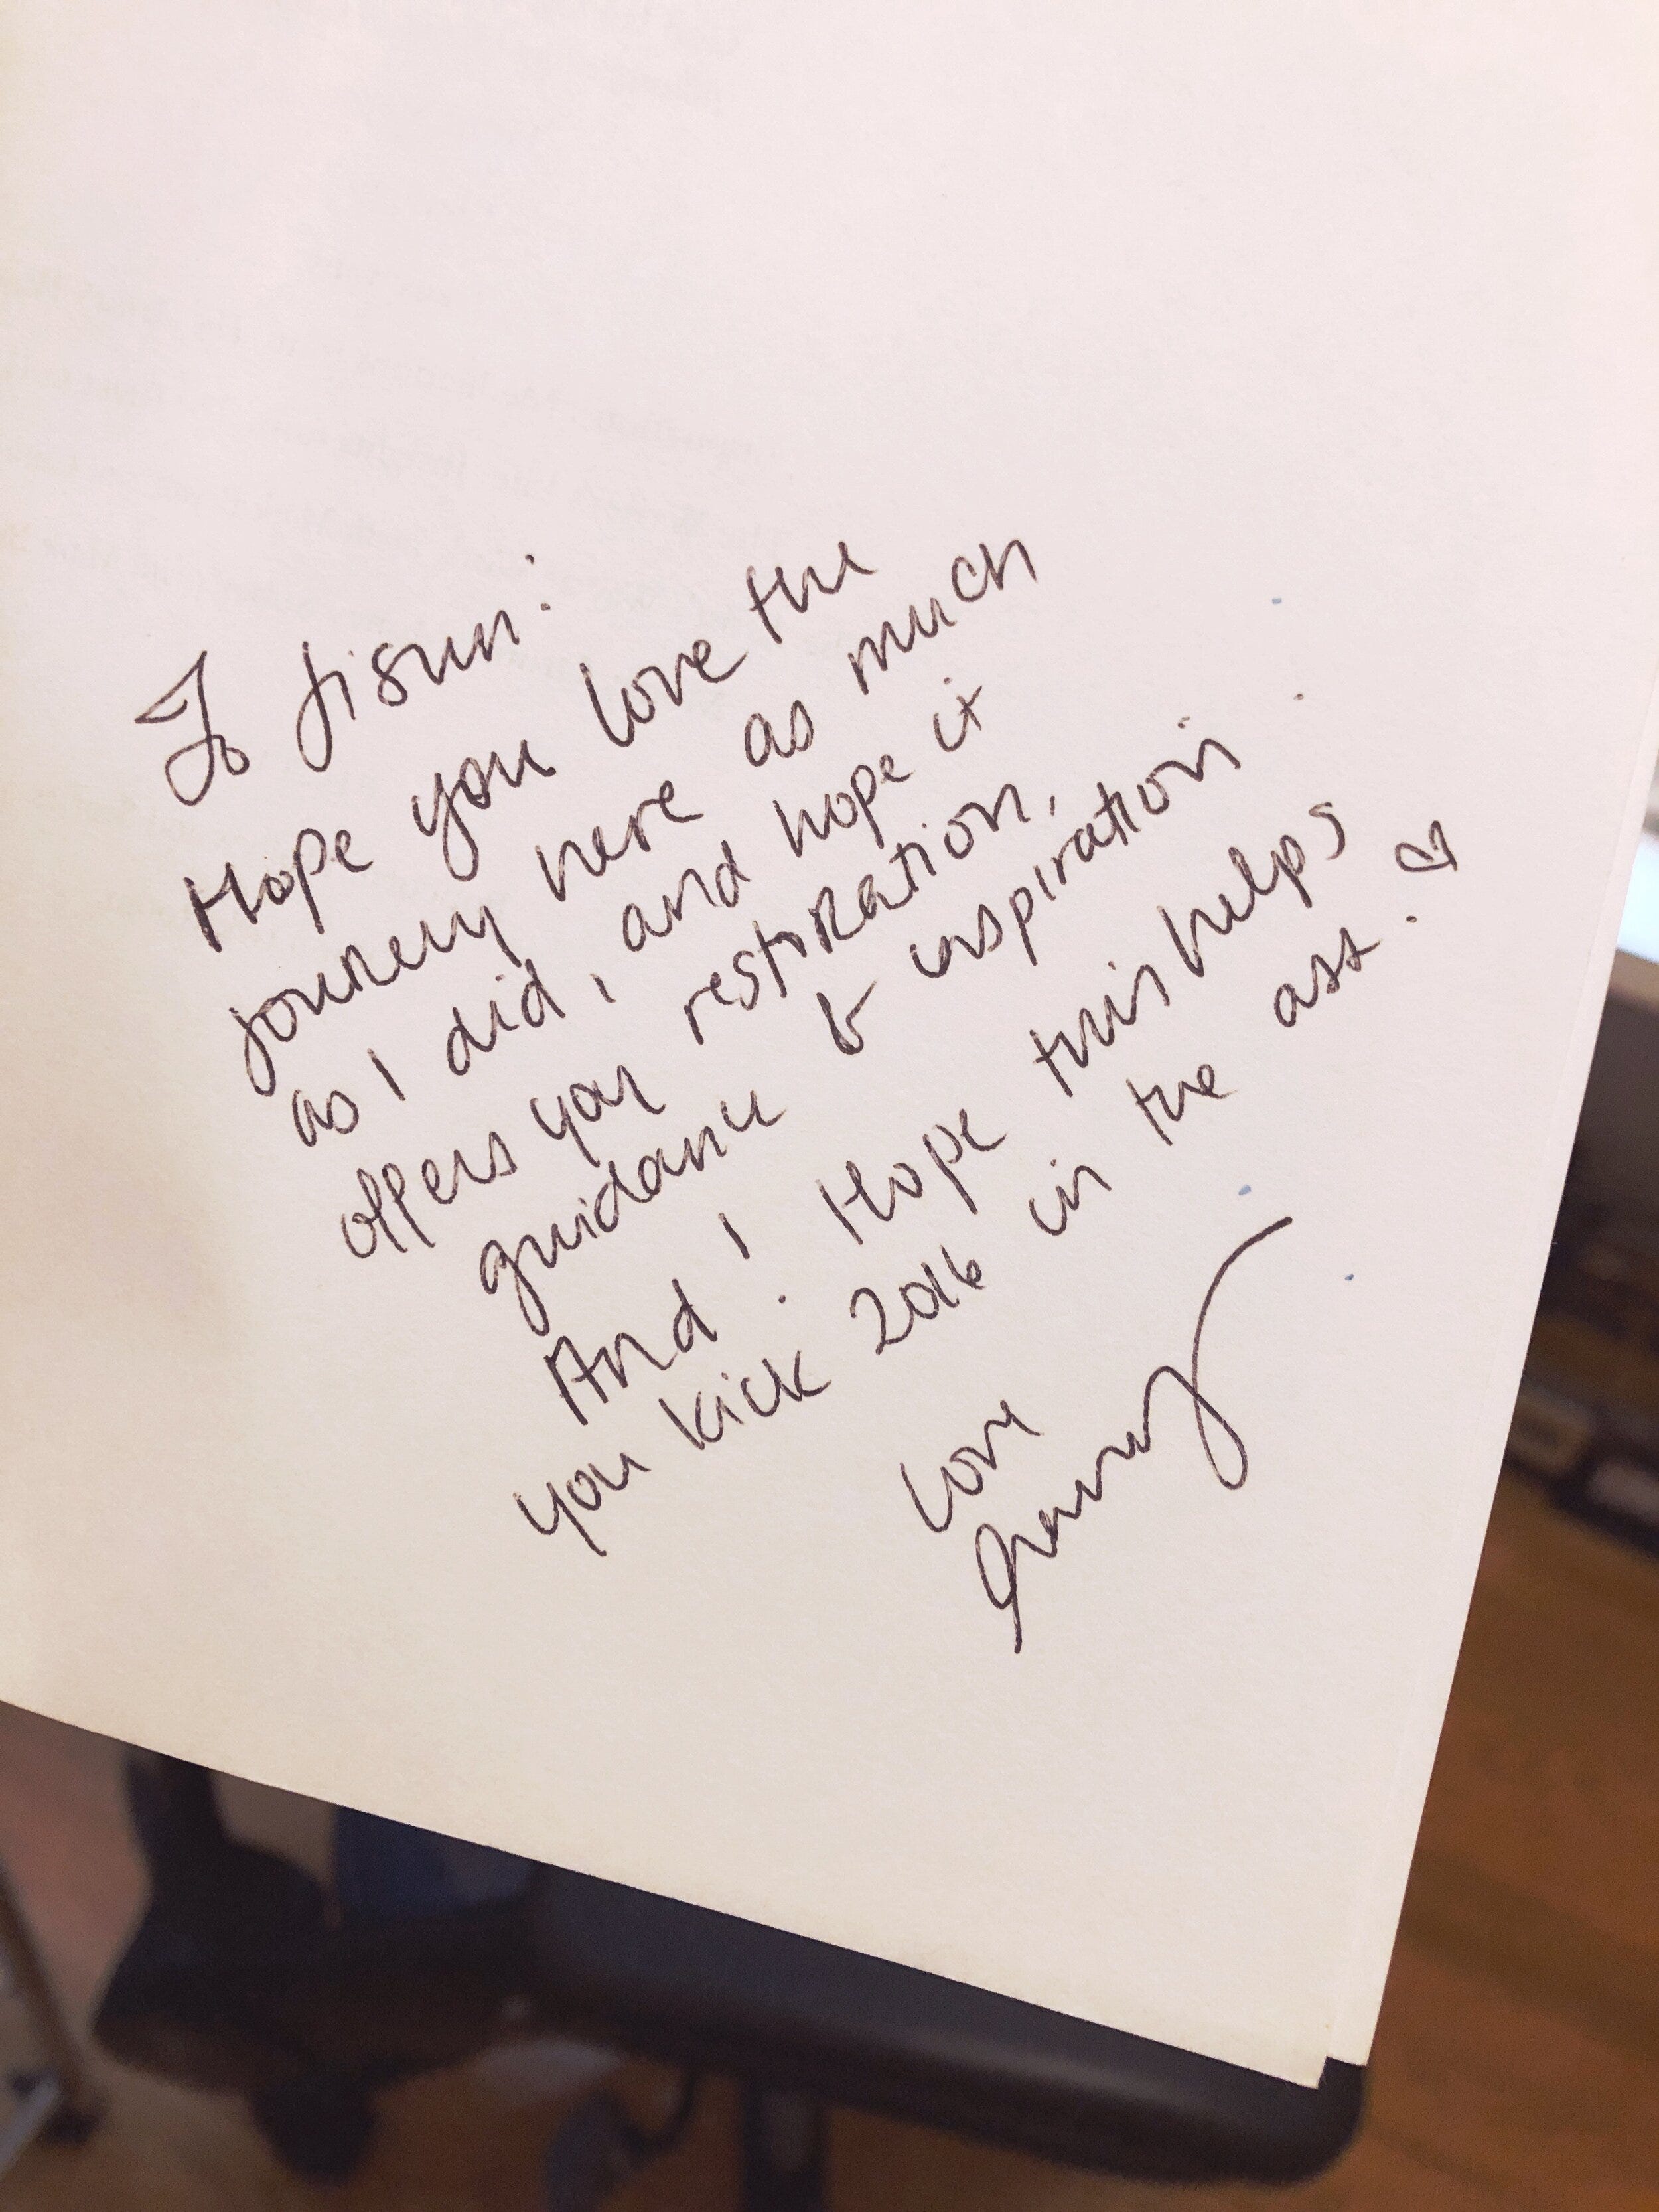 To Jisun:
Hope you love the
journey here as much
as I did, and hope it
offers you restoration,
guidance & inspiration.
And! Hope this helps
you kick 2016 in the ass. ♡
Love